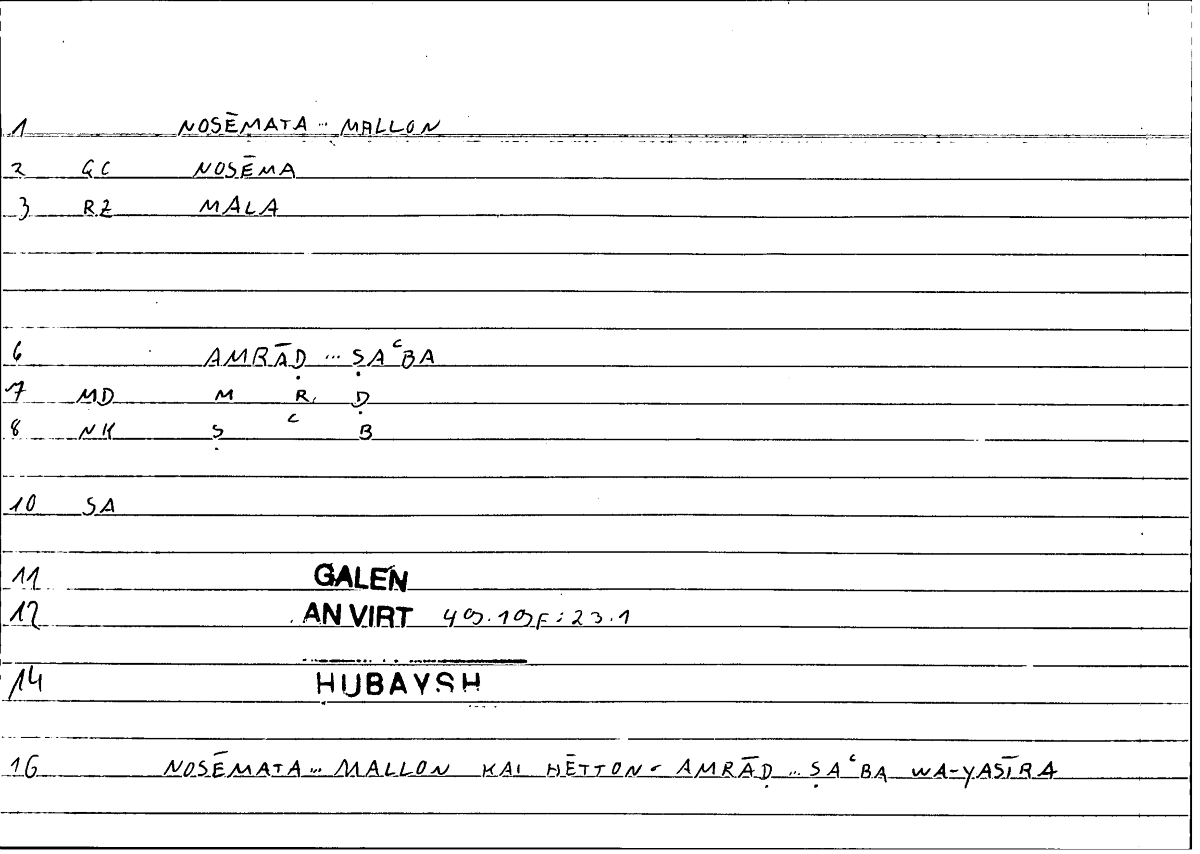 1 NOSĒMATA ... MALLON
2 GC NOSĒMA
3 RZ MALA
6 AMRĀḌ ... ṢAʿBA
7 MD M R Ḍ
8 NK Ṣ ʿ B
10 SA
11 GALEN
12 AN VIRT 49.19F:23.1
14 ḤUBAYSH
16 NOSĒMATA ... MALLON KAI HĒTTON - AMRĀḌ ... ṢAʿBA WA-YASĪRA